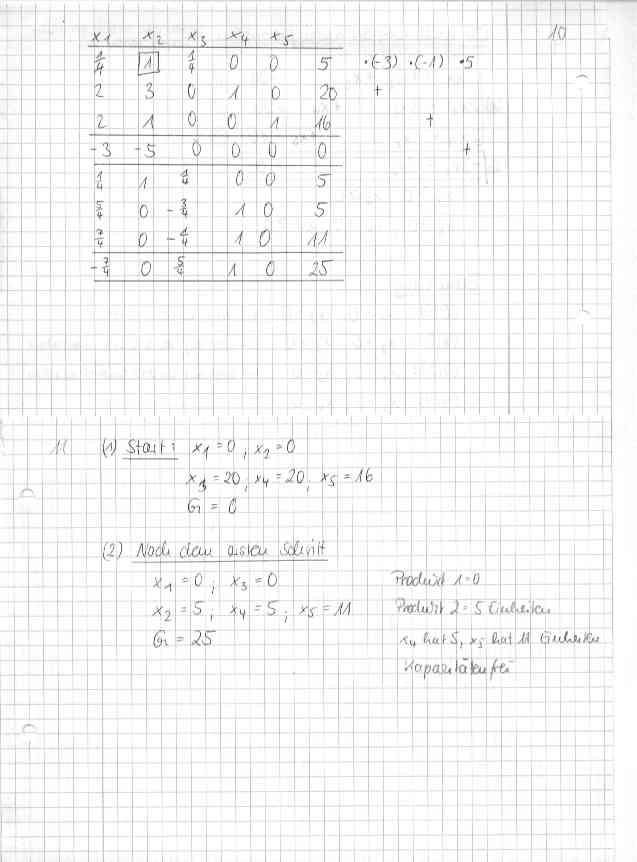 x1 x2 x3 x4 x5 10
1/4 1 1/4 0 0 5 ·(-3) ·(-1) ·5
2 3 0 1 0 20 +
2 1 0 0 1 16 +
-3 -5 0 0 0 0 +
1/4 1 1/4 0 0 5
5/4 0 -3/4 1 0 5
7/4 0 -1/4 1 0 11
-7/4 0 5/4 1 0 25
11 (1) Start: x1 = 0 ; x2 = 0
x3 = 20, x4 = 20, x5 = 16
G = 0
(2) Nach dem ersten Schritt
x1 = 0 ; x3 = 0 Produkt 1 = 0
x2 = 5 ; x4 = 5 ; x5 = 11 Produkt 2 = 5 Einheiten
G = 25 x4 hat 5, x5 hat 11 Einheiten
Kapazitäten frei